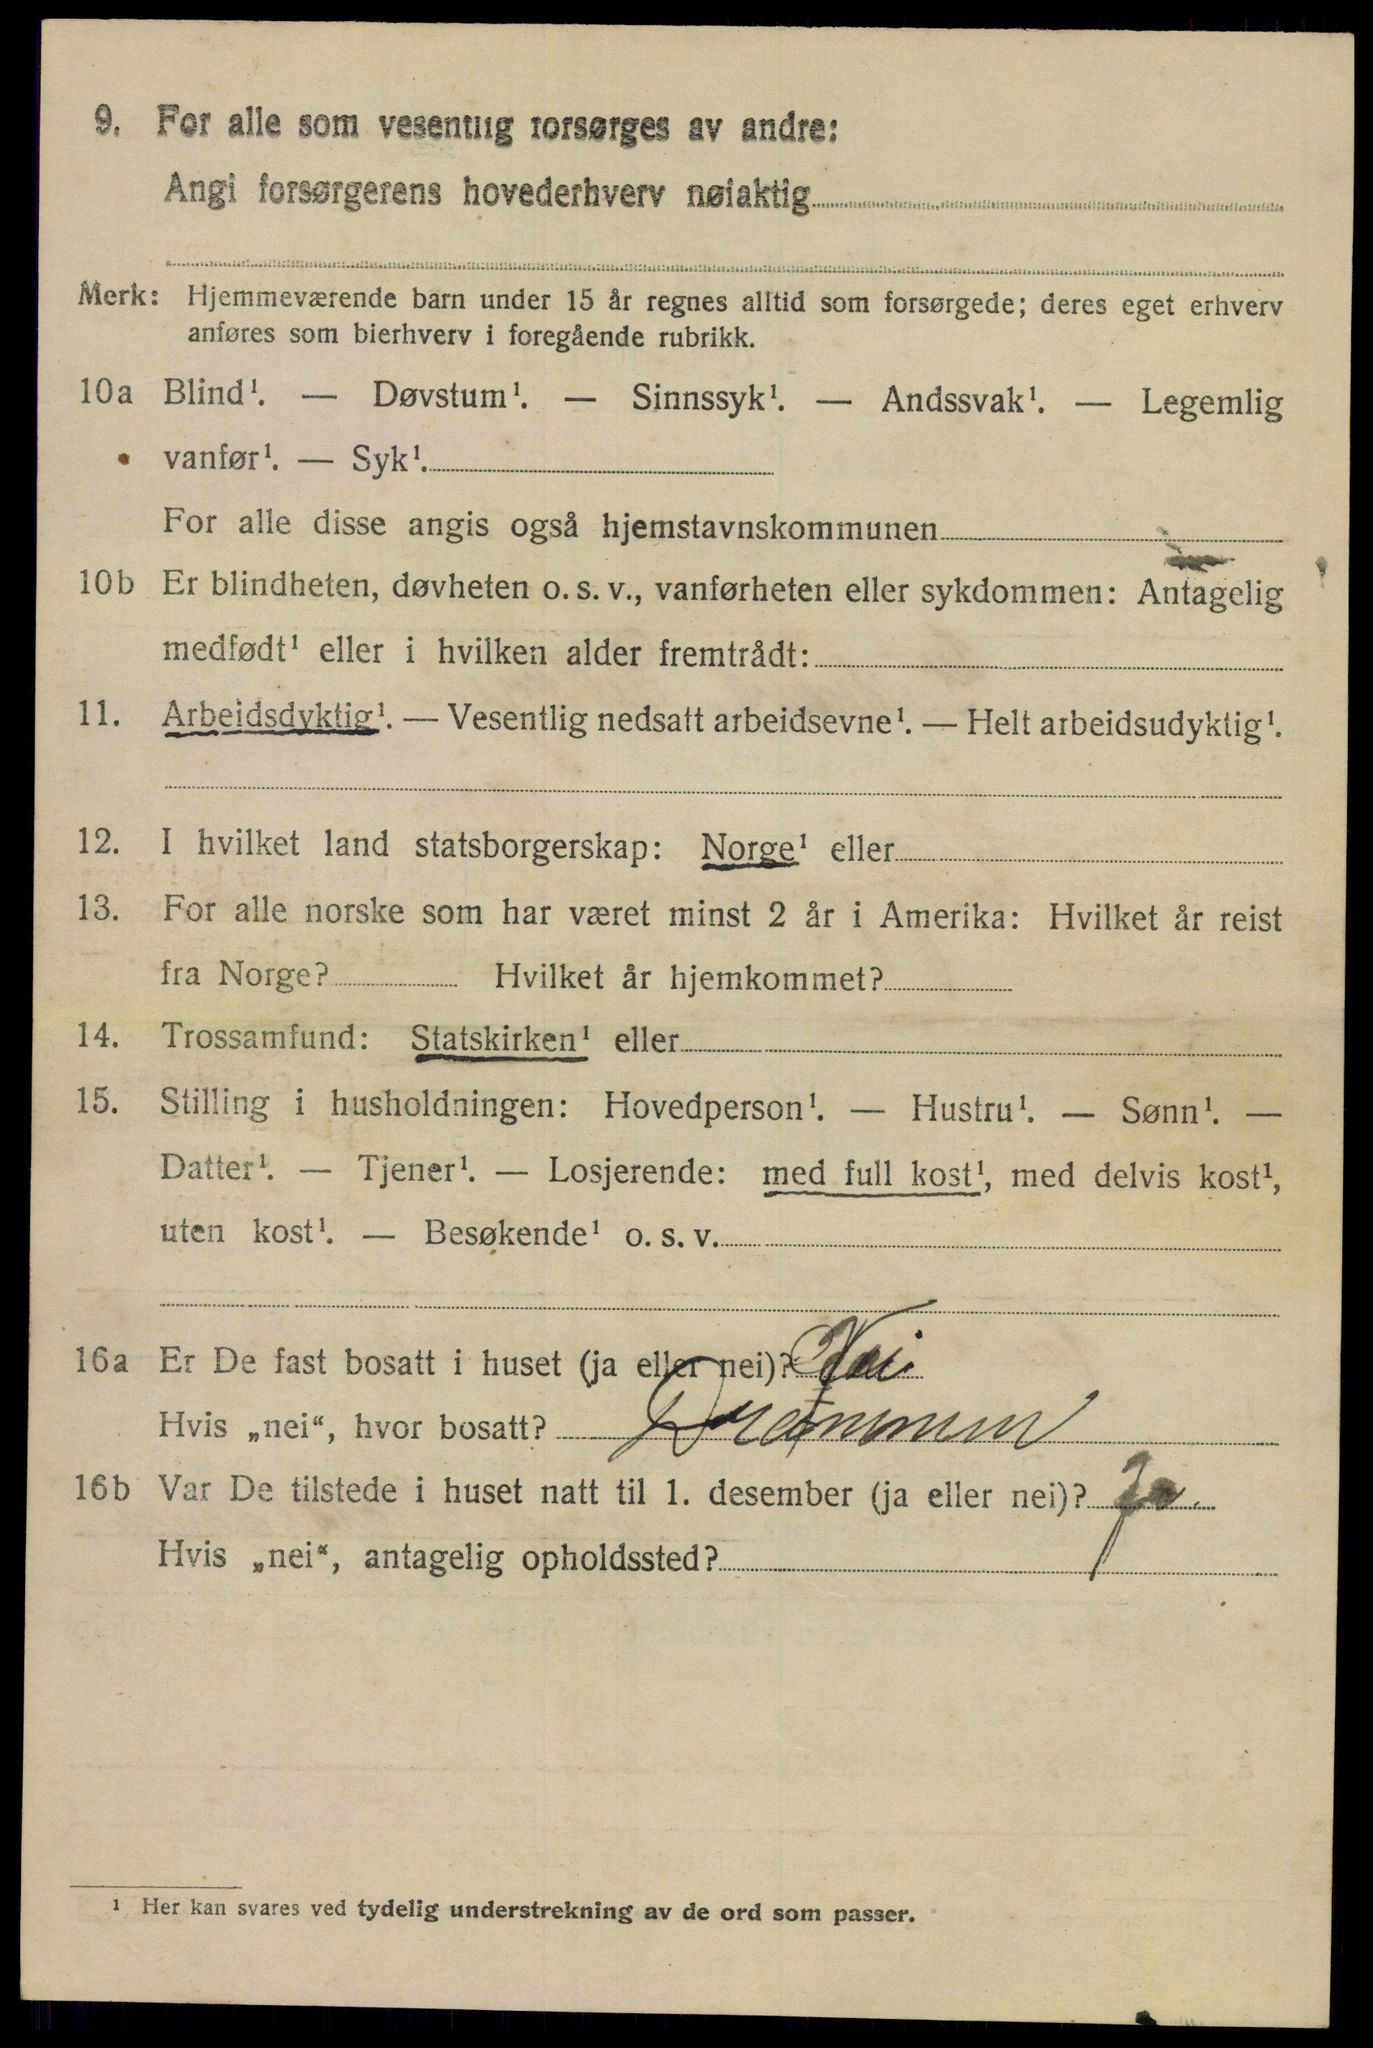 9. For alle som vesentlig forsørges av andre:
Angi forsørgerens hovederhverv nøiaktig
Merk: Hjemmeværende barn under 15 år regnes alltid som forsørgede; deres eget erhverv
anføres som bierhverv i foregående rubrikk.
10a Blind¹. — Døvstum¹. — Sinnssyk¹. — Andssvak¹. — Legemlig
vanfør¹. — Syk¹.
For alle disse angis også hjemstavnskommunen
10b Er blindheten, døvheten o. s. v., vanførheten eller sykdommen: Antagelig
medfødt¹ eller i hvilken alder fremtrådt:
11. Arbeidsdyktig¹. — Vesentlig nedsatt arbeidsevne¹. — Helt arbeidsudyktig¹.
12. I hvilket land statsborgerskap: Norge¹ eller
13. For alle norske som har været minst 2 år i Amerika: Hvilket år reist
fra Norge? Hvilket år hjemkommet?
14. Trossamfund: Statskirken¹ eller
15. Stilling i husholdningen: Hovedperson¹. — Hustru¹. — Sønn¹. —
Datter¹. — Tjener¹. — Losjerende: med full kost¹, med delvis kost¹,
uten kost¹. — Besøkende¹ o. s. v.
16a Er De fast bosatt i huset (ja eller nei)? Nei.
Hvis „nei“, hvor bosatt? Drammen
16b Var De tilstede i huset natt til 1. desember (ja eller nei)? Ja.
Hvis „nei“, antagelig opholdssted?
¹ Her kan svares ved tydelig understrekning av de ord som passer.